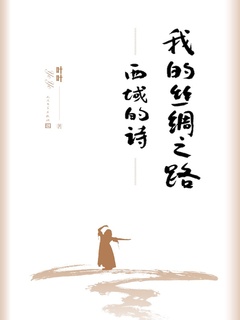 我的丝绸之路
西域的诗
叶叶
著